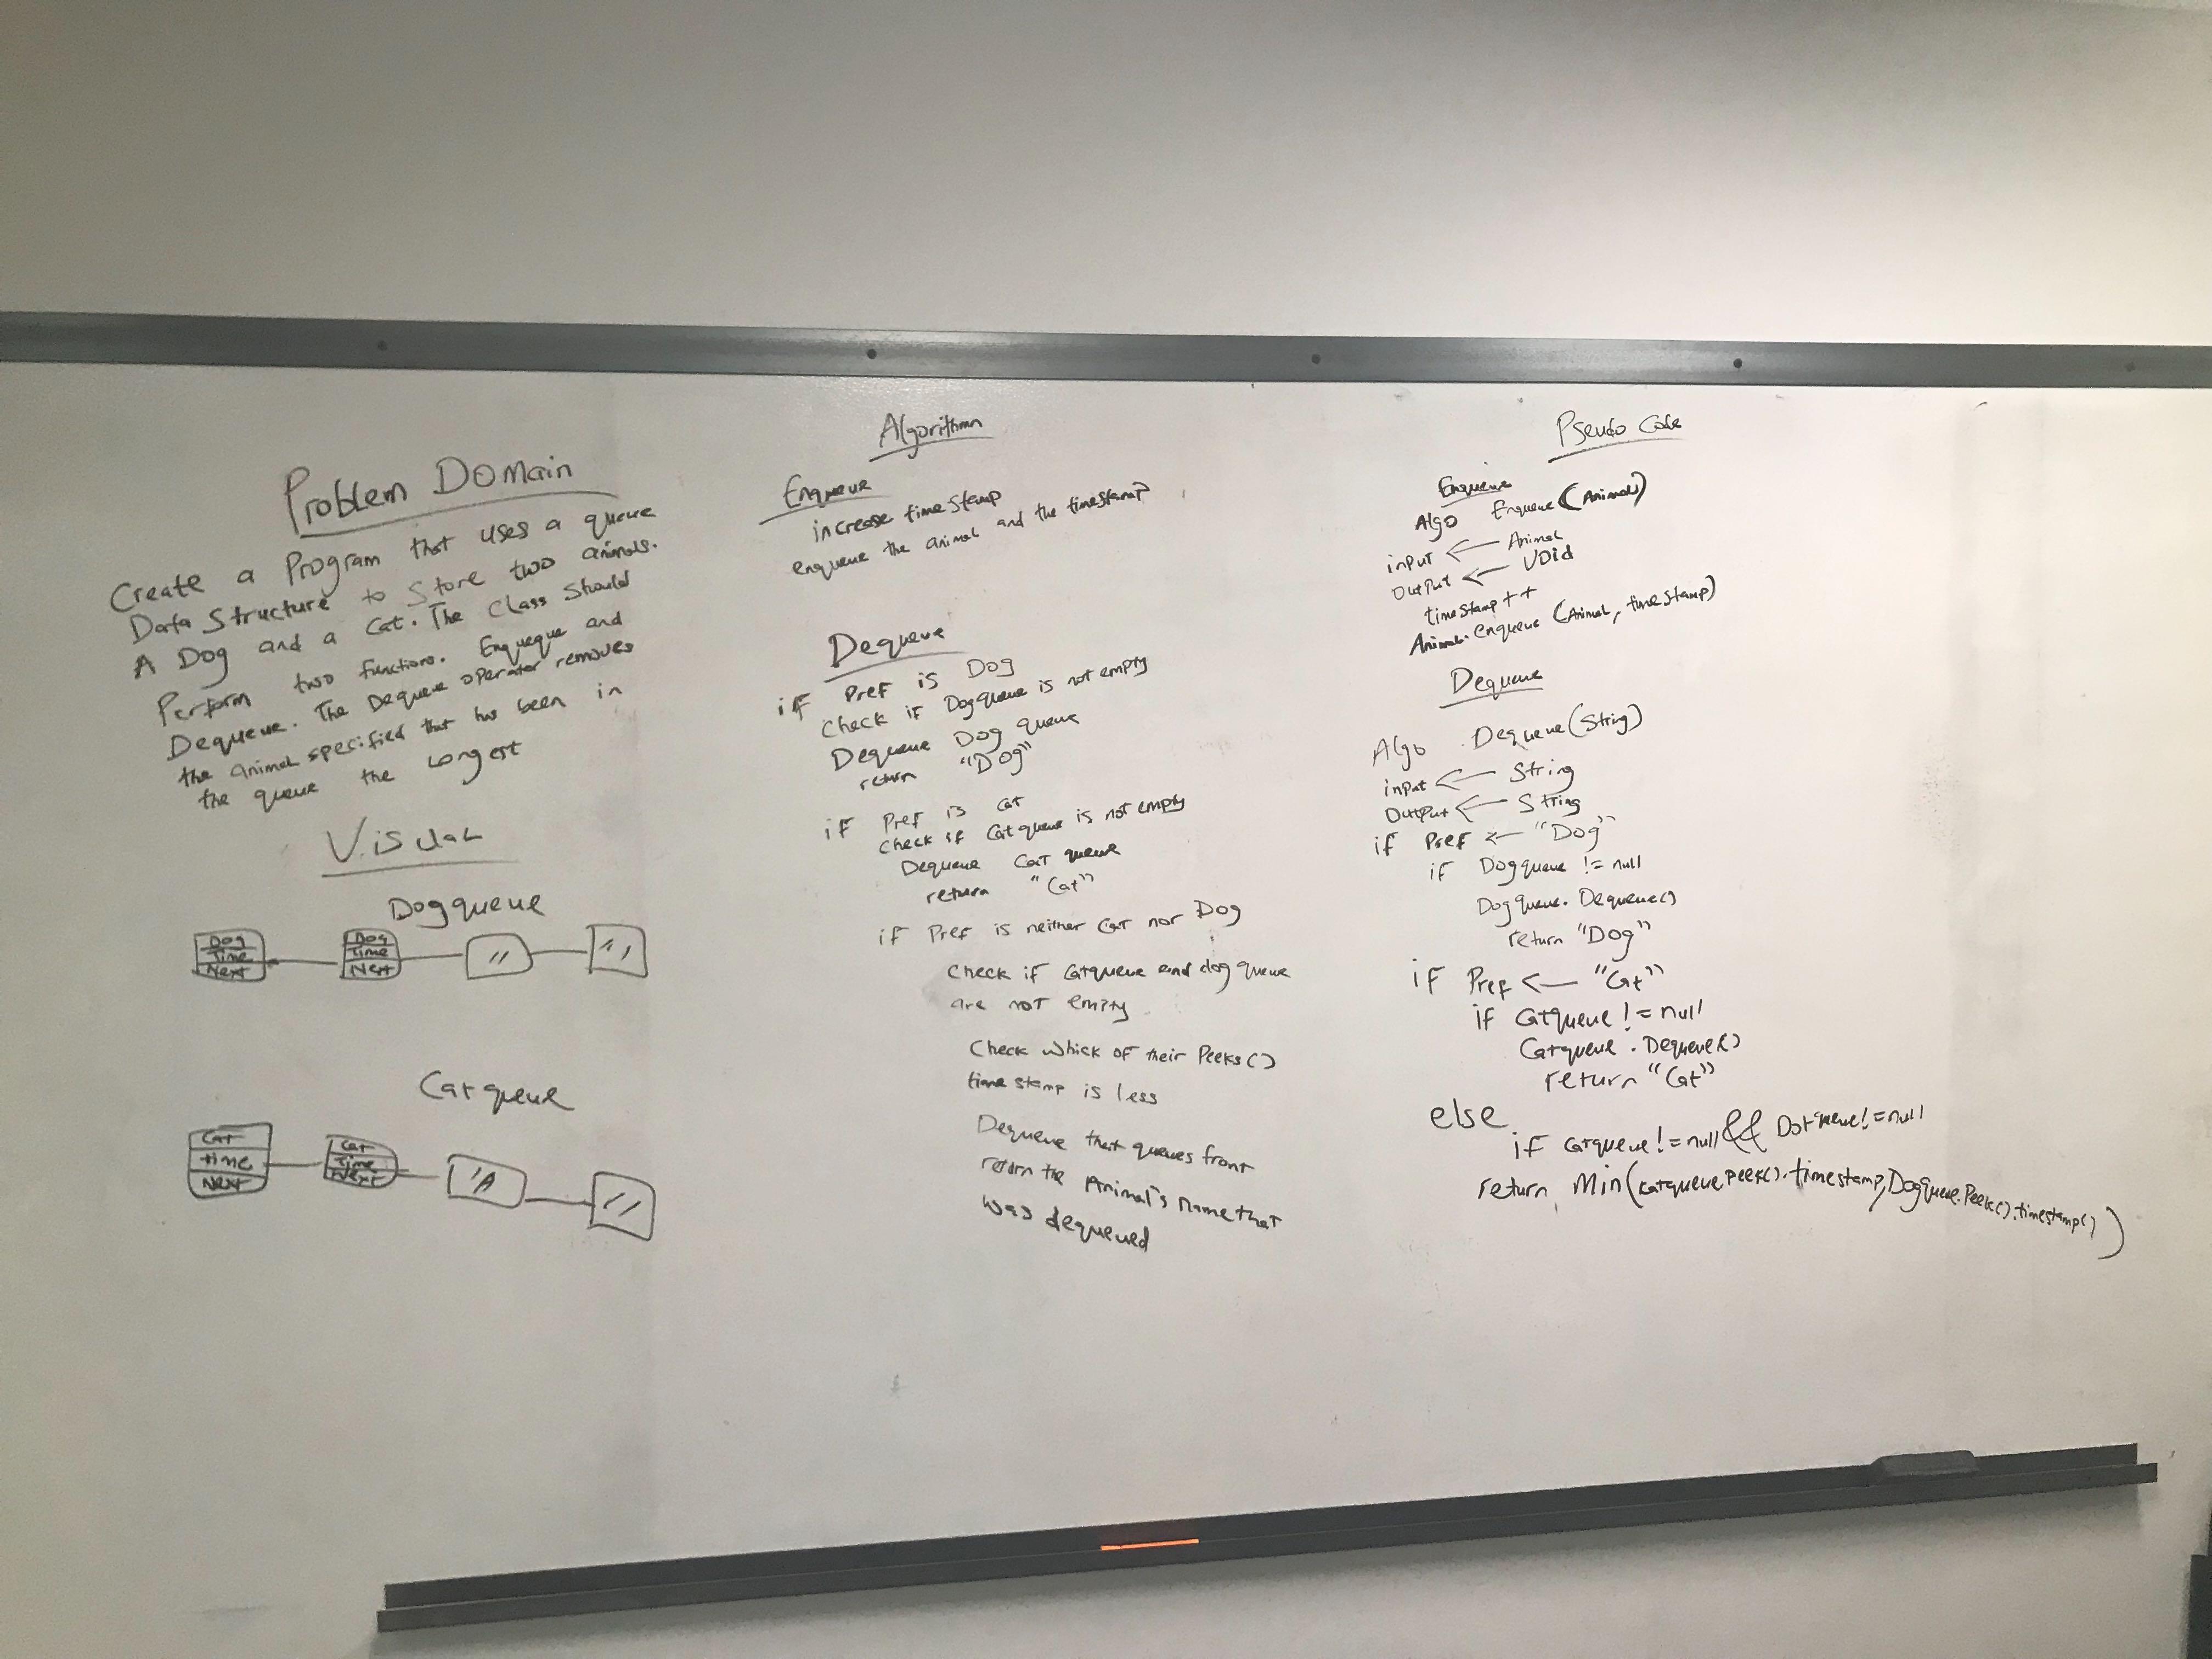 Problem Domain
Create a Program that uses a queue
Data Structure to Store two animals.
A Dog and a Cat. The Class Should
Perform two functions. Enqueque and
Dequeue. The Dequeue operator removes
the animal specified that has been in
the queue the Longest
Visual
Dogqueue
Dog
Time
Next
Dog
Time
Next
"
"
Catqueue
Cat
time
Next
Cat
Time
Next
"
Algorithm
Enqueue
increase timeStamp
enqueue the animal and the timestamp
Dequeue
if Pref is Dog
Check if Dogqueue is not empty
Dequeue Dog queue
return "Dog"
if Pref is cat
Check if Catqueue is not empty
Dequeue Cat queue
return "Cat"
if Pref is neither Cat nor Dog
Check if Catqueue and dog queue
are not empty
Check which of their Peeks()
time stamp is less
Dequeue that queues front
return the Animal's name that
was dequeued
Pseudo Code
Enqueue
Algo Enqueue (Animal)
input <— Animal
Output <— Void
timeStamp++
Animal.enqueue (Animal, timeStamp)
Dequeue
Algo Dequeue(String)
input <— String
Output <— String
if Pref <— "Dog"
if Dogqueue != null
Dogqueue.Dequeue()
return "Dog"
if Pref <— "Cat"
if Catqueue != null
Catqueue.Dequeue()
return "Cat"
else
if Catqueue != null && != null
return Min(Catqueue.Peek().timestamp, Dogqueue.Peek().timestamp())